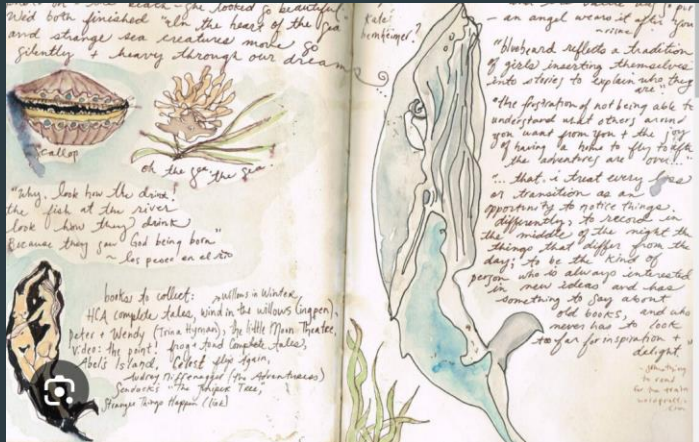 she looked so beautiful.
We'd both finished "In the heart of the sea"
and strange sea creatures move so
silently + heavy through our dreams
scallop
oh the sea, the sea
"Why, look how they drink!
the fish at the river
look how they drink
Because they saw God being born"
~ los peces en el rio
books to collect: Willows in Winter
HCA complete tales, wind in the willows (ingpen),
Peter + Wendy (Trina Hyman), The little Moon Theatre,
Video: the point, frog + toad complete tales,
Abel's Island,
Audrey Niffenegger (Adventuress)
Sendack's "The Juniper Tree,"
Stranger Things Happen (Link)
Kate
bernheimer?
— an angel wears it after you
"bluebeard reflects a tradition
of girls inserting themselves
into stories to explain who they
are"
"the frustration of not being able to
understand what others around
you want from you + the joy
of having a home to fly to after
the adventures are over..."
"... that i treat every loss
or transition as an
opportunity to notice things
differently; to record in
the middle of the night the
things that differ from the
day; to be the kind of
person who is always interested
in new ideas and has
something to say about
old books, and who
never has to look
too far for inspiration +
delight.